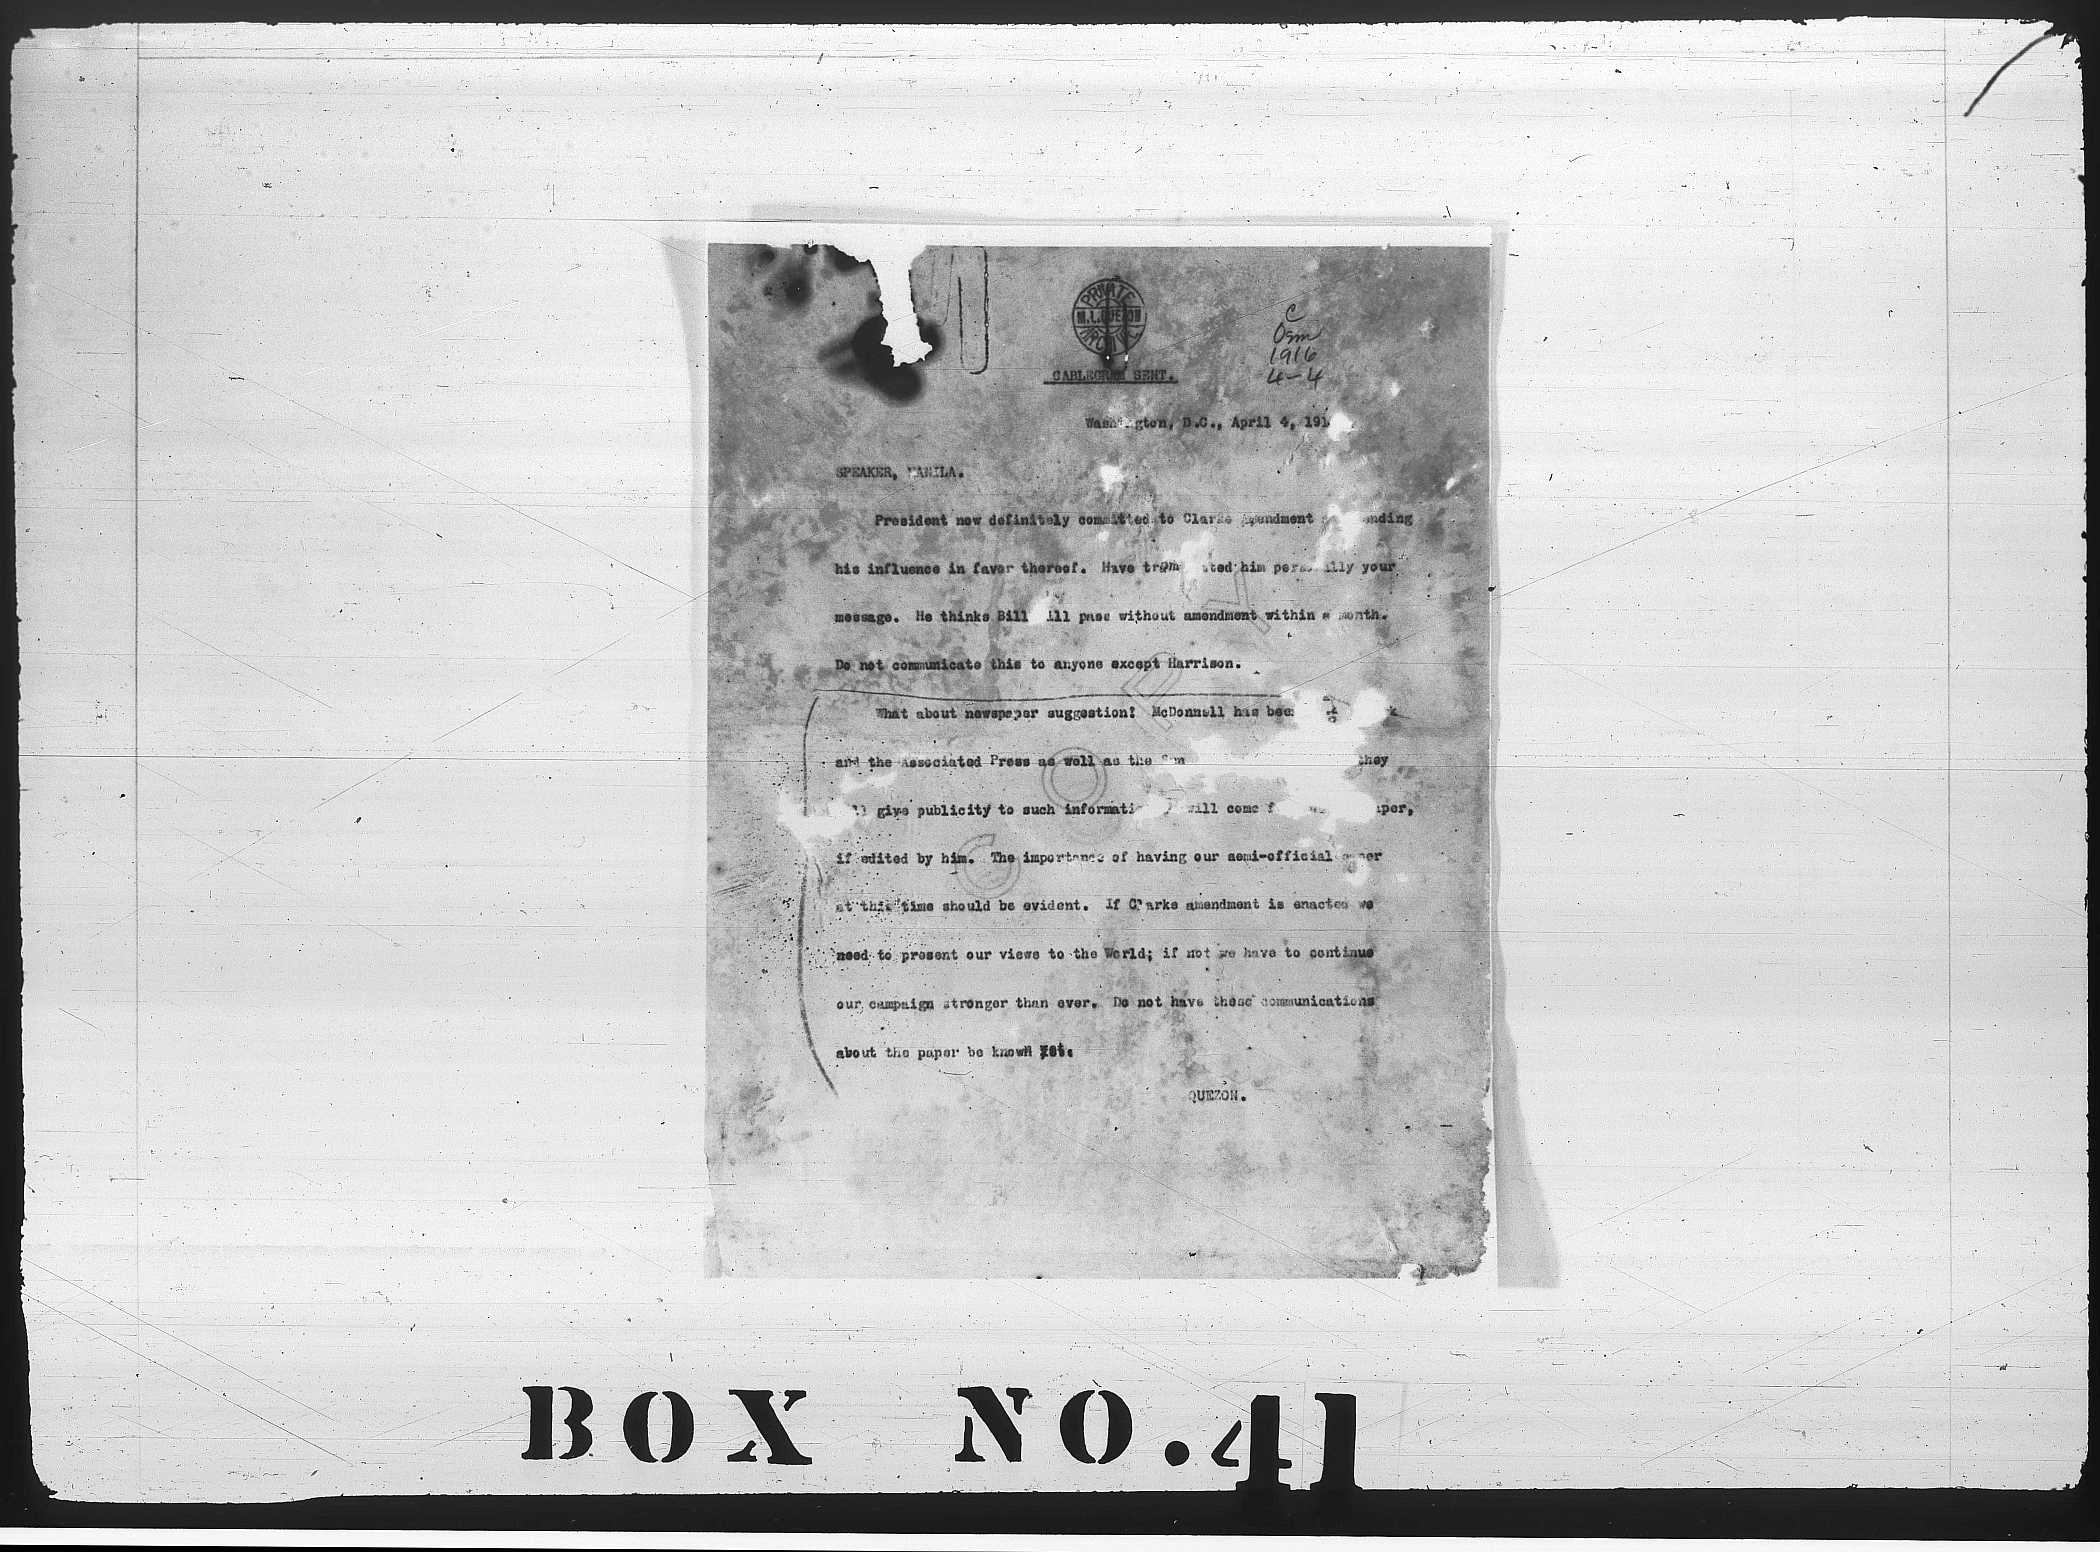 PRIVATE
M.L. QUEZON
ARCHIVE
C
Osm
1916
4-4
CABLEGRAM SENT.
Washington, D.C., April 4, 191
SPEAKER, MANILA.
President now definitely committed to Clarke Amendment
his influence in favor thereof. Have him personally your
message. He thinks Bill will pass without amendment within a month.
Do not communicate this to anyone except Harrison.
What about newspaper suggestion? McDonnell has
and the Associated Press as well as the they
give publicity to such information will come
if edited by him. The importance of having our semi-official paper
at this time should be evident. If Clarke amendment is enacted we
need to present our views to the World; if not we have to continue
our campaign stronger than ever. Do not have these communications
about the paper be known yet.
QUEZON.
COPY
BOX NO. 41